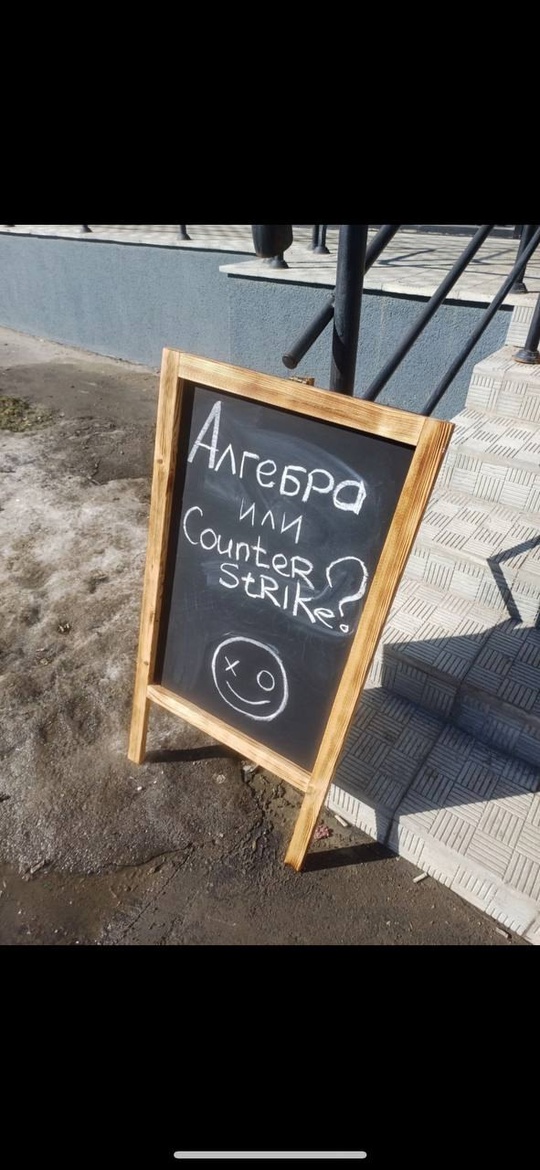 Алгебра
или
Counter
Strike?